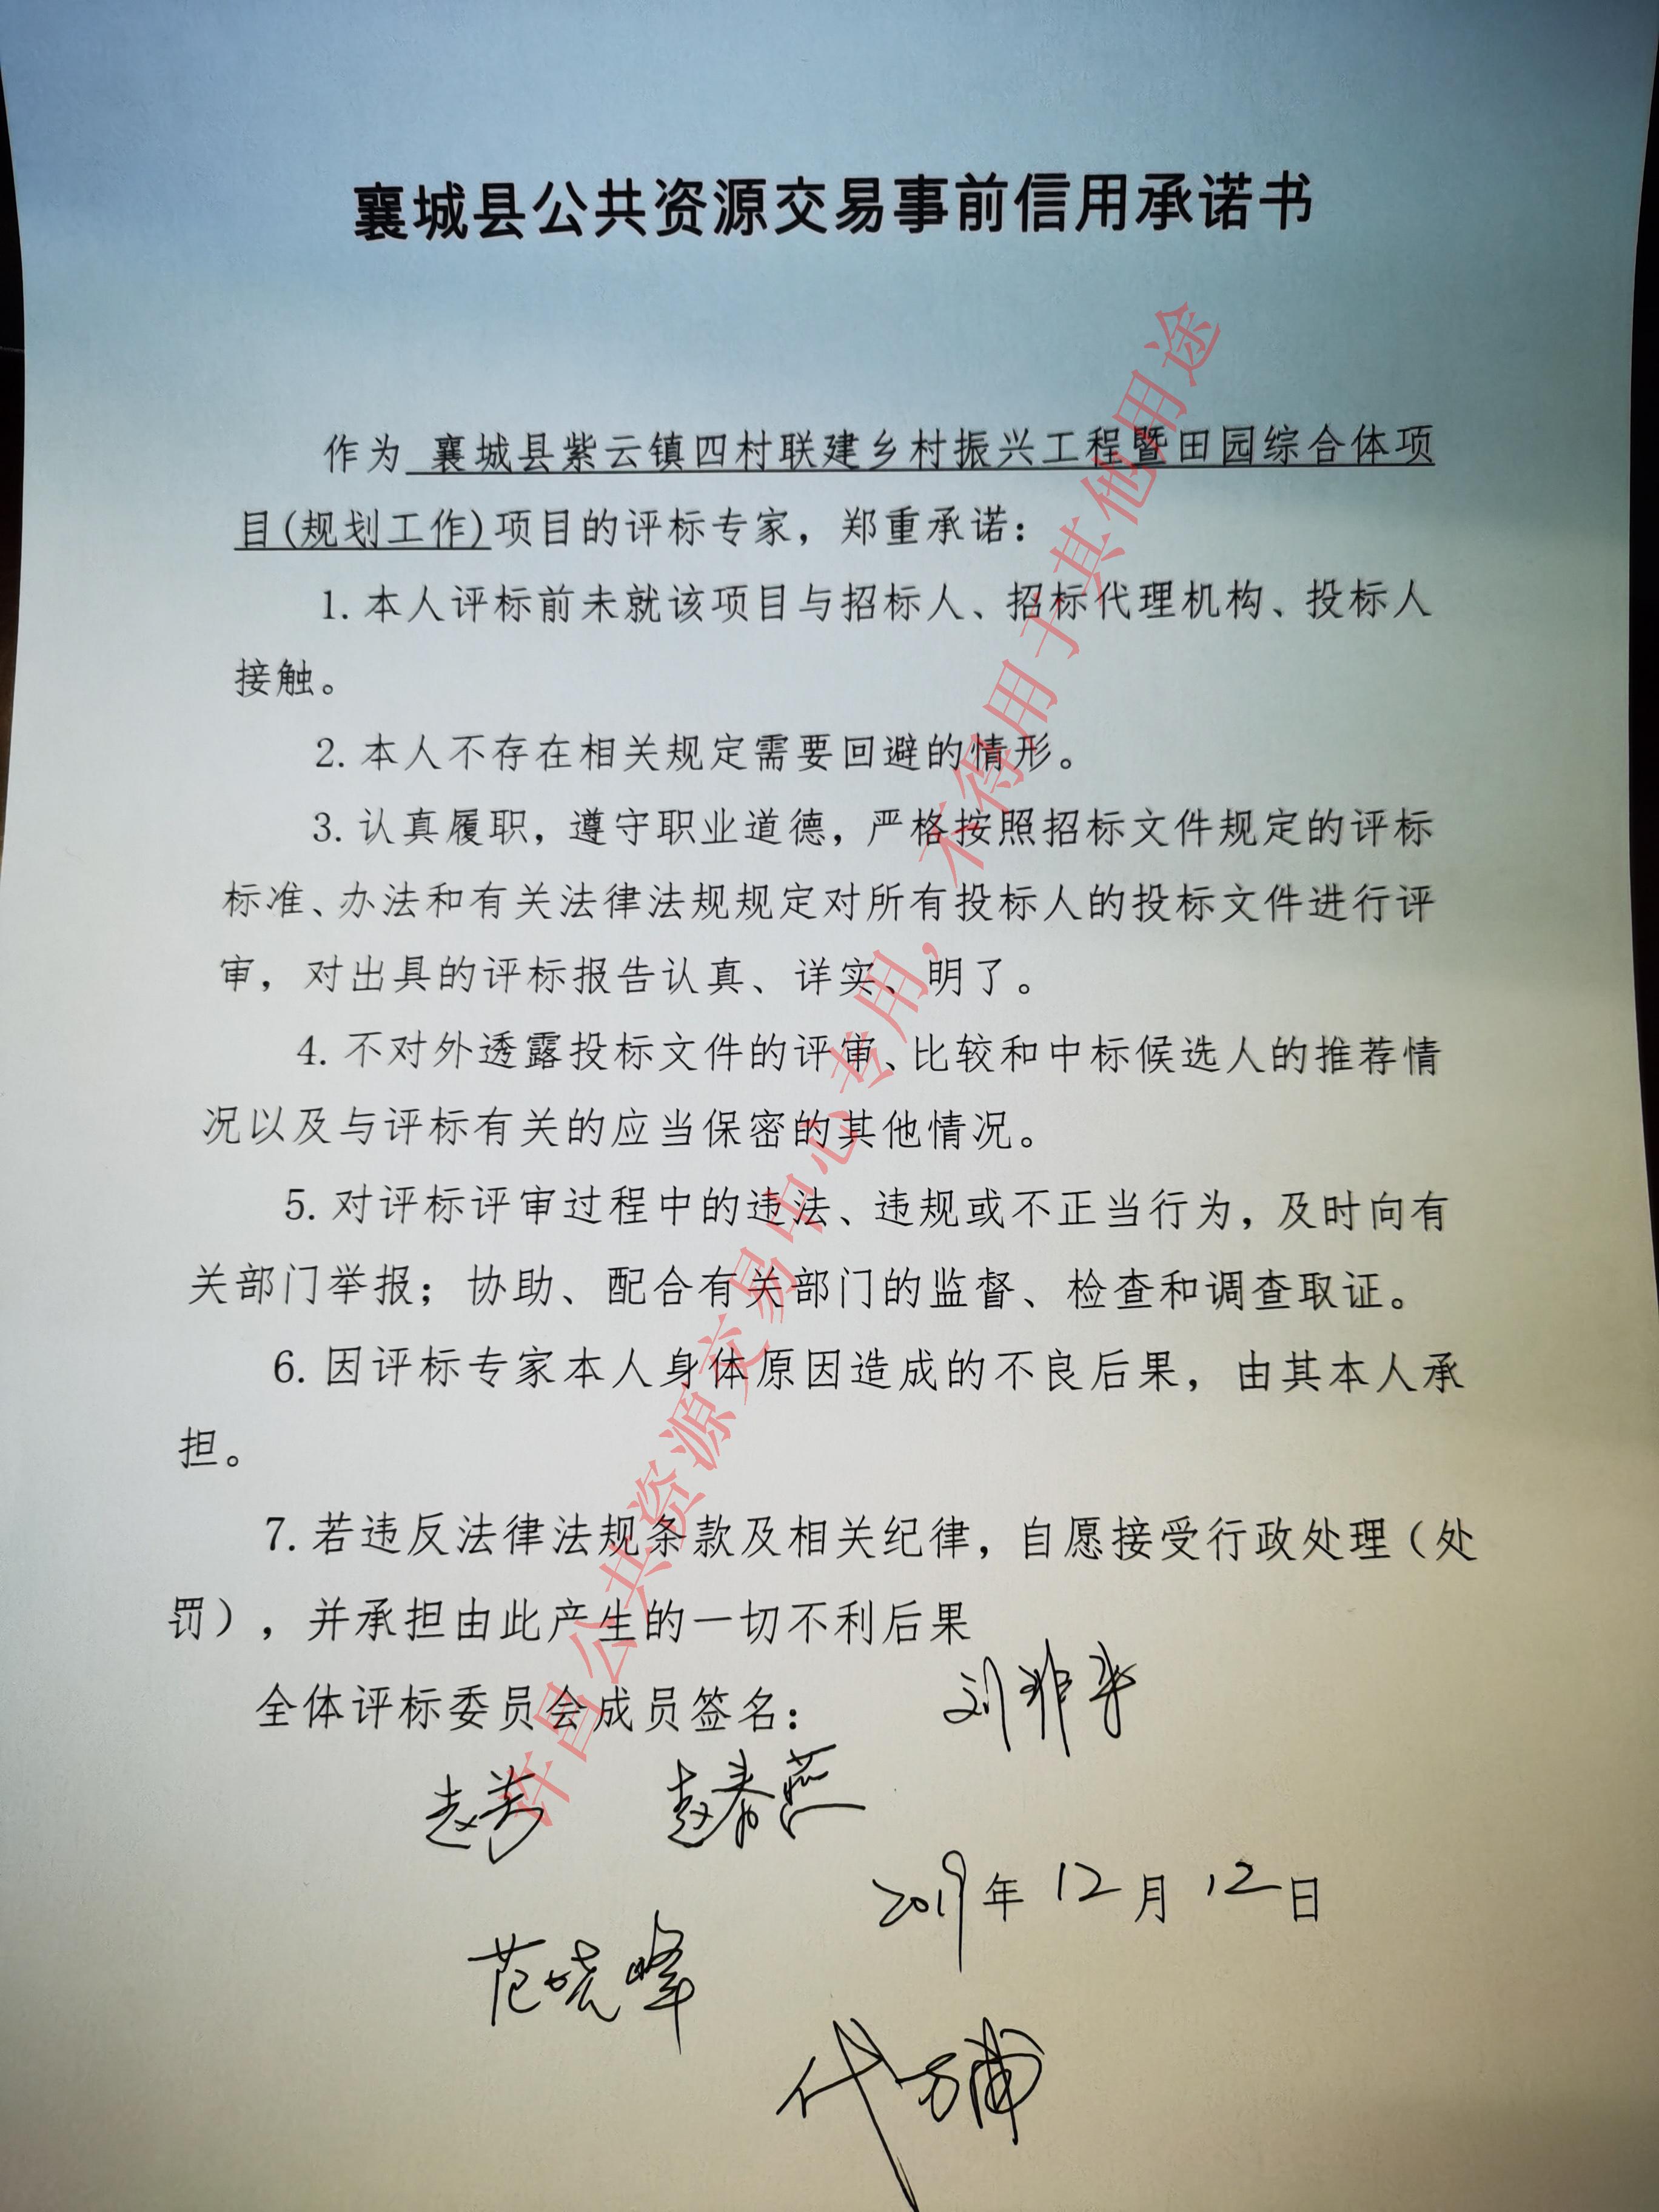 襄城县公共资源交易事前信用承诺书
作为 襄城县紫云镇四村联建乡村振兴工程暨田园综合体项
目(规划工作)项目的评标专家，郑重承诺：
1.本人评标前未就该项目与招标人、招标代理机构、投标人
接触。
2.本人不存在相关规定需要回避的情形。
3.认真履职，遵守职业道德，严格按照招标文件规定的评标
标准、办法和有关法律法规规定对所有投标人的投标文件进行评
审，对出具的评标报告认真、详实、明了。
4.不对外透露投标文件的评审、比较和中标候选人的推荐情
况以及与评标有关的应当保密的其他情况。
5.对评标评审过程中的违法、违规或不正当行为，及时向有
关部门举报；协助、配合有关部门的监督、检查和调查取证。
6.因评标专家本人身体原因造成的不良后果，由其本人承
担。
7.若违反法律法规条款及相关纪律，自愿接受行政处理（处
罚），并承担由此产生的一切不利后果
全体评标委员会成员签名：
赵芳 赵春燕
2019年12月12日
范晓峰
许昌公共资源交易中心专用，不得用于其他用途